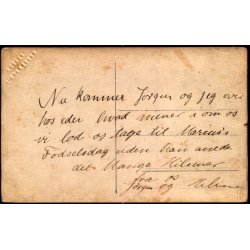 Nu kommer Jørgen og jeg over
hos eder hvad mener i om og
vi lod os tage til Marius's
Fødselsdag uden han anede
det Mange Hilsner
fra
Jørgen og